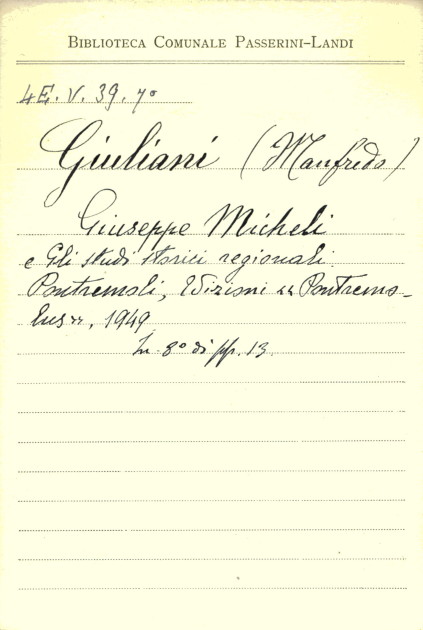 BIBLIOTECA COMUNALE PASSERINI-LANDI
4E. V. 39. 7º
Giuliani (Manfredo)
Giuseppe Micheli
e Gli studi storici regionali.
Pontremoli, Edizioni «Pontremo-
lus», 1949
In 8º di pp. 13.